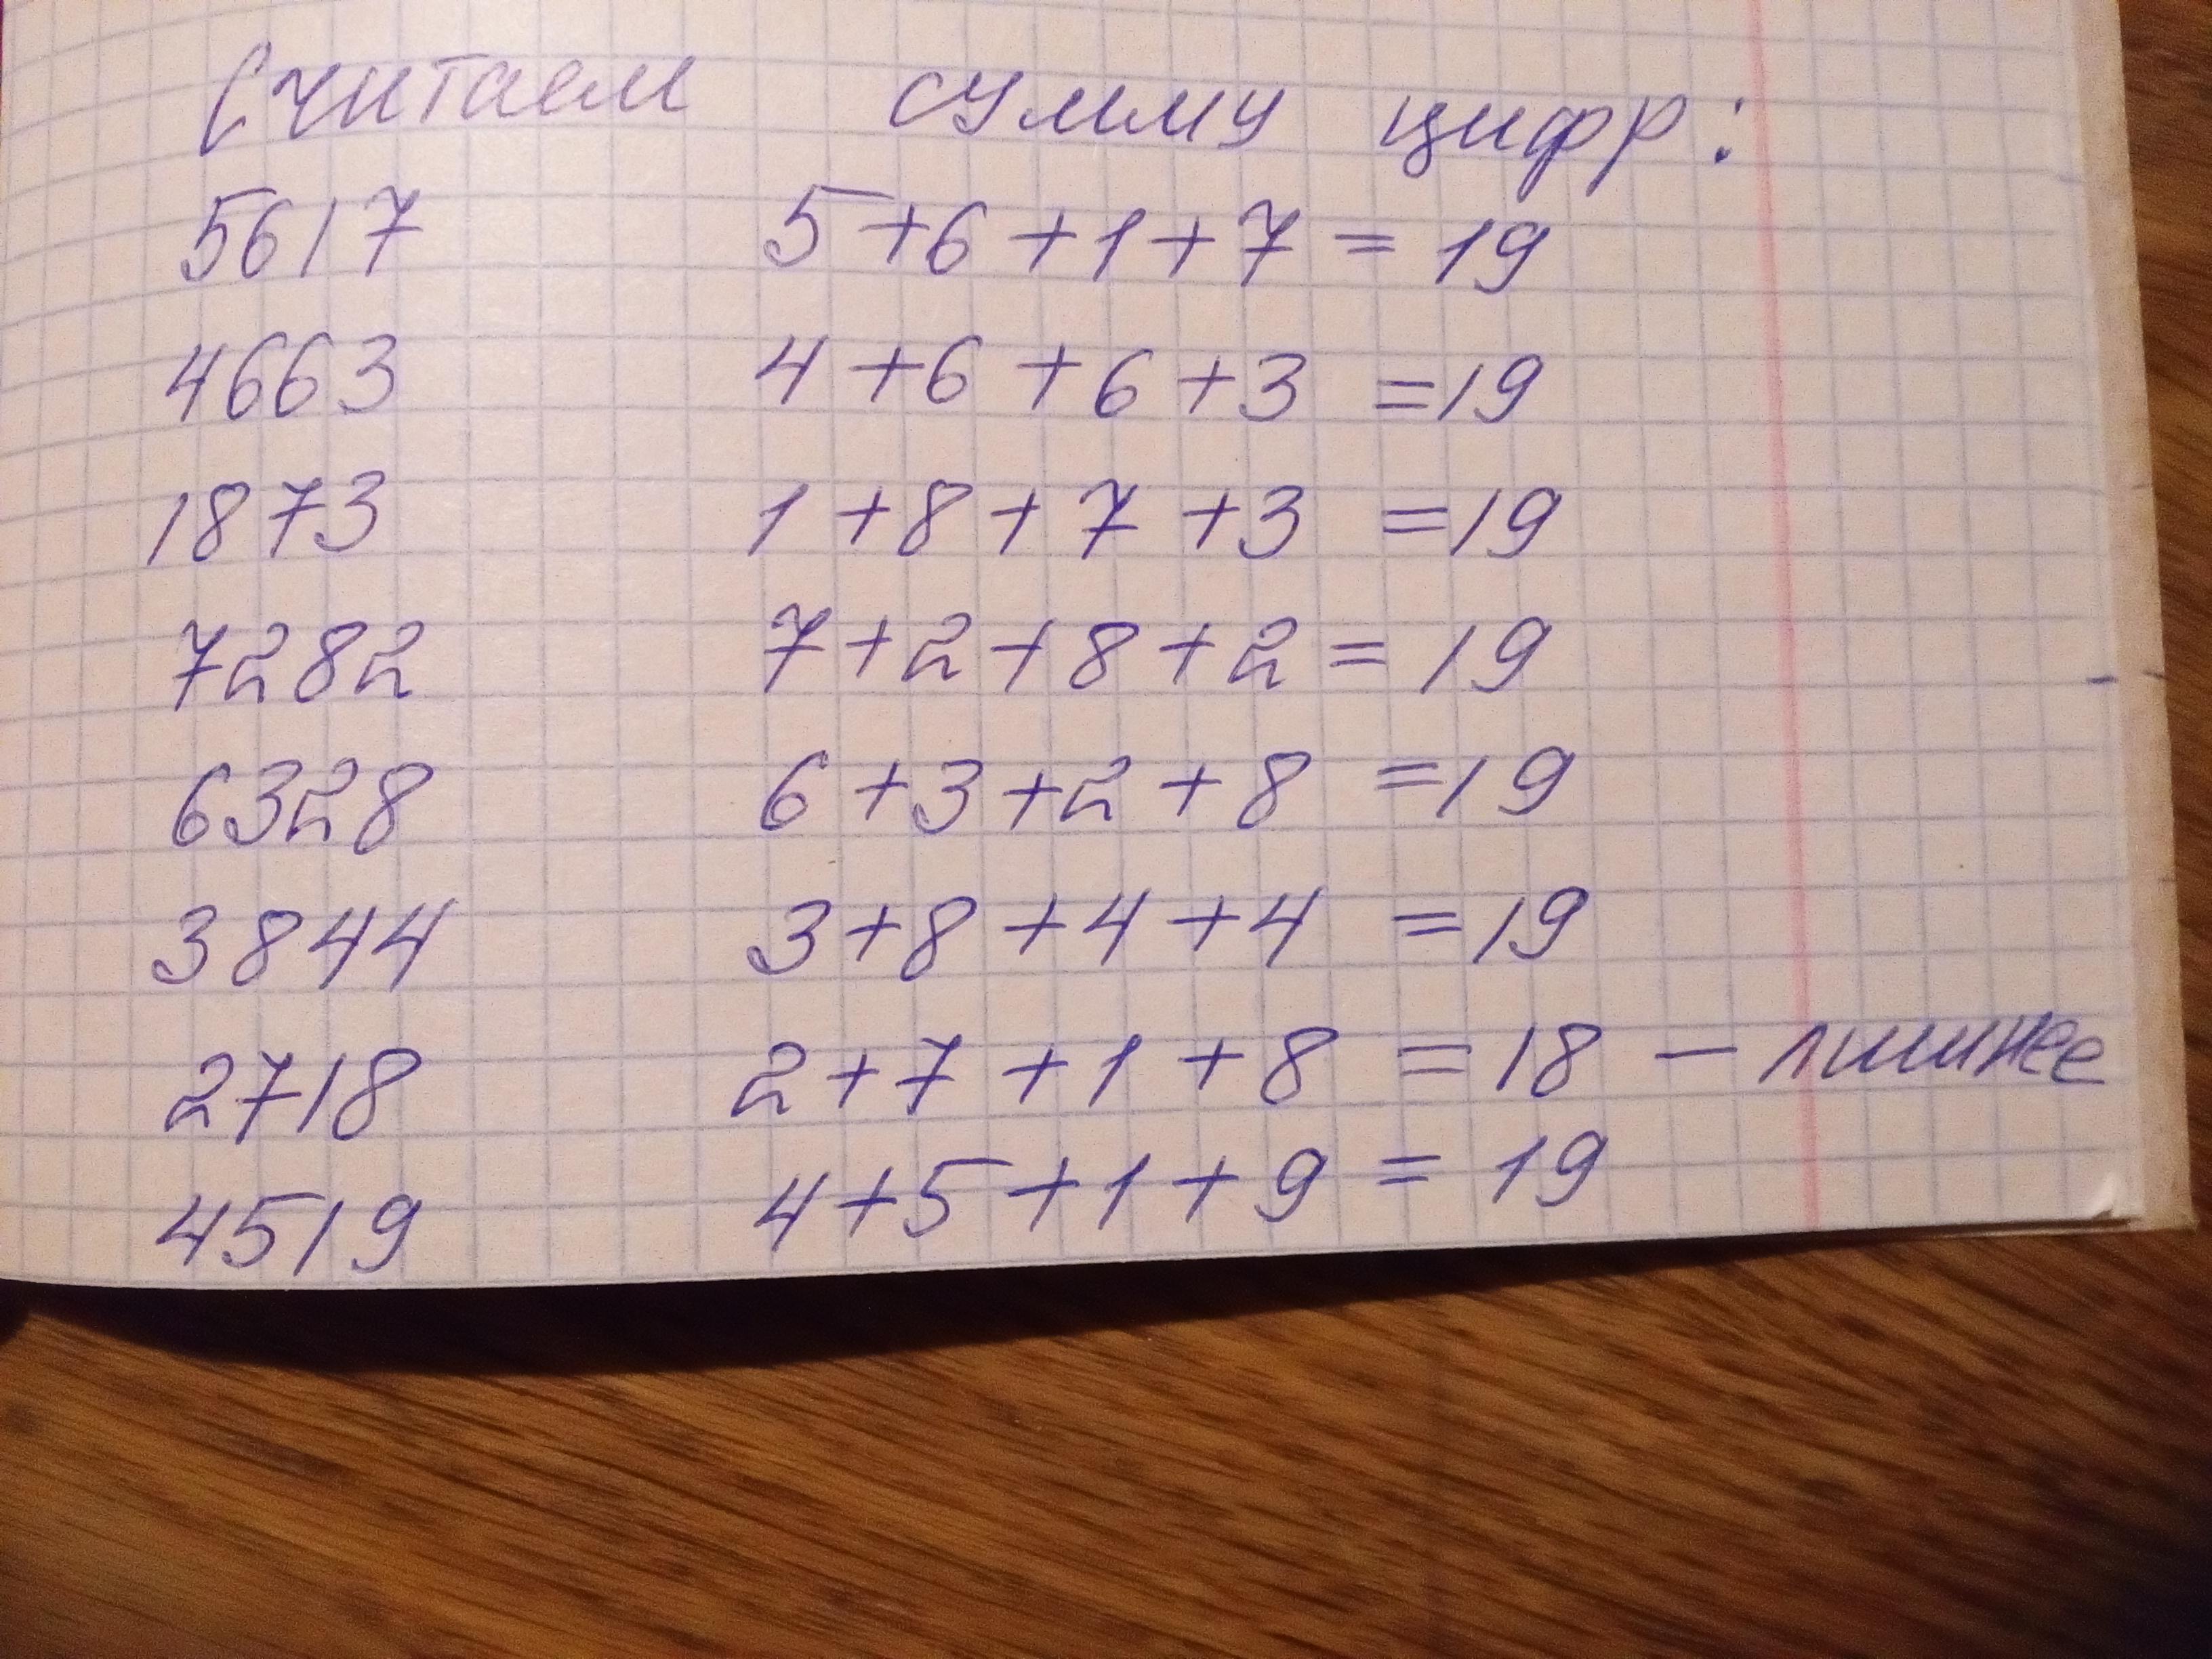 Считаем сумму цифр:
5617 5+6+1+7=19
4663 4+6+6+3=19
1873 1+8+7+3=19
7282 7+2+8+2=19
6328 6+3+2+8=19
3844 3+8+4+4=19
2718 2+7+1+8=18 — лишнее
4519 4+5+1+9=19